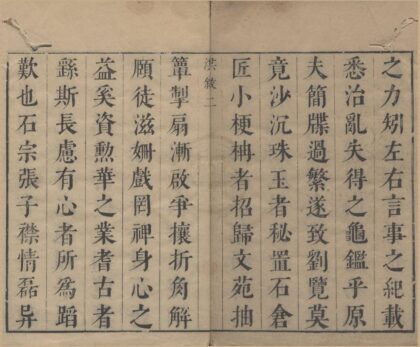 之力矧左右言事之紀載
悉治亂失得之龜鑑乎原
夫簡牒過繁遂致劉覽莫
竟沙沉珠玉者秘置石倉
匠小梗枏者招歸文苑抽
洪䋲二
簞掣扇漸啟爭攘折角解
頤徒滋姍戲罔裨身心之
益奚資勲華之業耆古者
繇斯長慮有心者所為蹈
歎也石宗張子襟情磊异